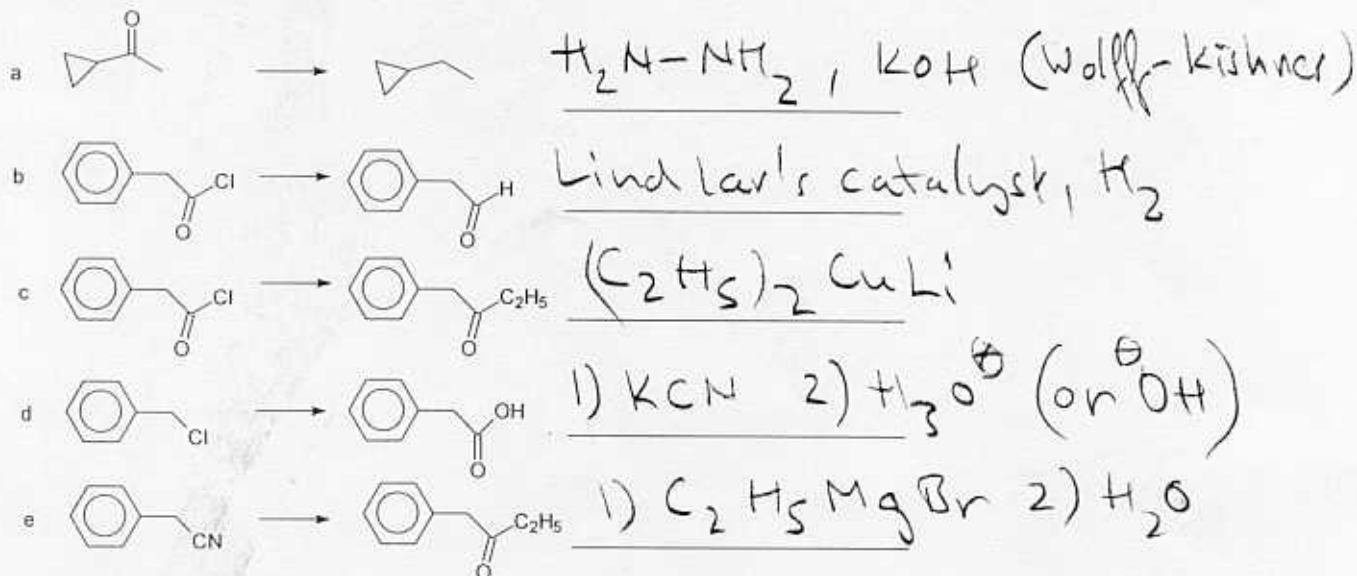 O
a H₂N-NH₂, KOH (Wolff-Kishner)
b Cl O H O Lindlar's catalyst, H₂
c Cl O C₂H₅ O (C₂H₅)₂CuLi
d Cl OH O 1) KCN 2) H₃O⊕ (or ⊖OH)
e CN C₂H₅ O 1) C₂H₅MgBr 2) H₂O